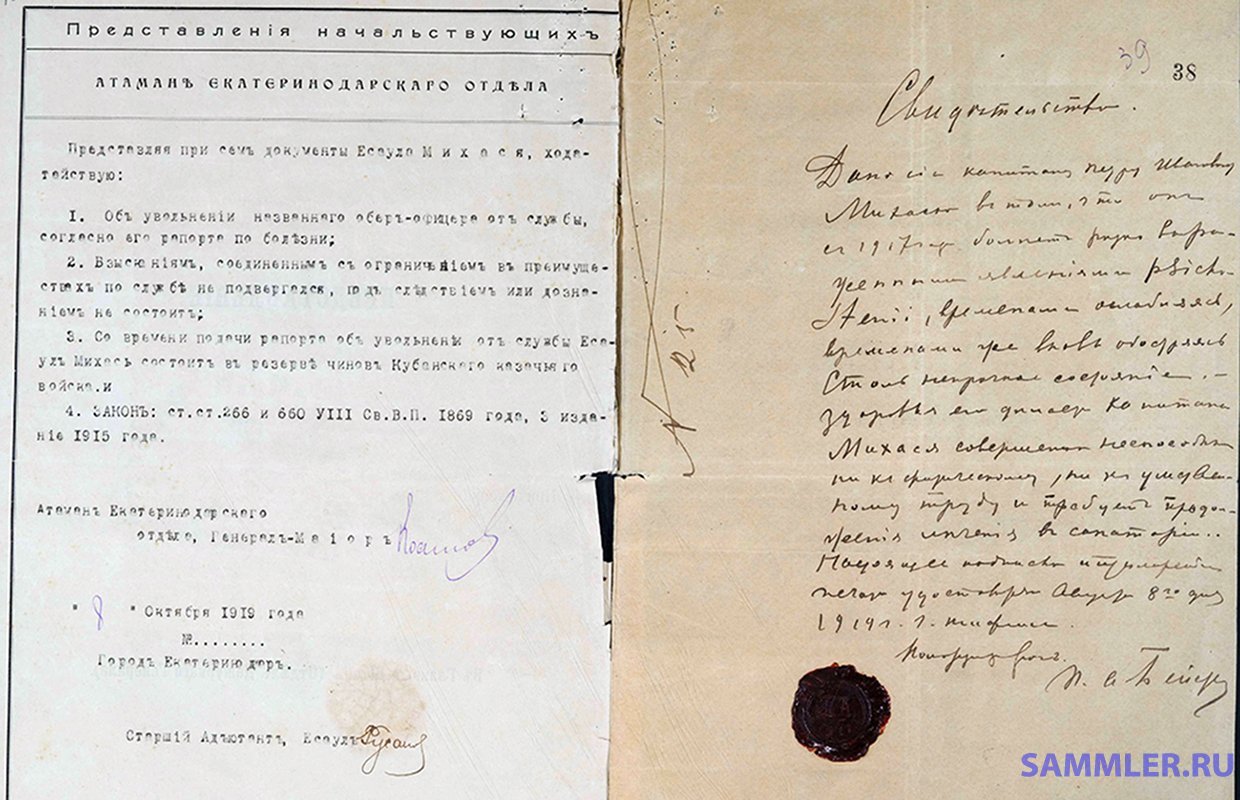 Представленія начальствующихъ
АТАМАНЪ ЕКАТЕРИНОДАРСКАГО ОТДѢЛА
Представляя при семъ документы Есаула Михася, хода-
тайствую:
1. Объ увольненіи названнаго оберъ-офицера отъ службы,
согласно его рапорта по болѣзни;
2. Взысканіямъ, соединеннымъ съ ограниченіемъ въ преимуще-
ствахъ по службѣ не подвергался, подъ слѣдствіемъ или дозна-
ніемъ не состоитъ;
3. Со времени подачи рапорта объ увольненіи отъ службы Еса-
улъ Михась состоитъ въ резервѣ чиновъ Кубанскаго казачьяго
войска.и
4. ЗАКОНЪ: ст.ст.266 и 660 УІІІ Св.В.П. 1869 года, 3 изда-
ніе 1915 года.
Атаманъ Екатеринодарскаго
отдѣла, Генералъ-Маіоръ
" 8 " Октября 1919 года
№........
Городъ Екатеринодоръ.
Старшій Адъютантъ, Есаулъ Русанов
39
38
Свидѣтельство.
Дано сіе капитану Петру Ивановичу
Михасю въ томъ, что онъ
съ 1917 года болѣетъ выра-
женными явленіями psicha-
stenii, временами ослабляясь,
временами же вновь обостряясь
Столь непрочное состояніе
здоровья его дѣлаетъ Капитана
Михася совершенно неспособнымъ
ни къ физическому, ни къ умствен-
ному труду и требуетъ продол-
женія лѣченія въ санаторіи..
Настоящее подписью и приложеніемъ
печати удостовѣряю Августа 8го дня
1919 г. г. Тифлисъ.
№ 25
SAMMLER.RU